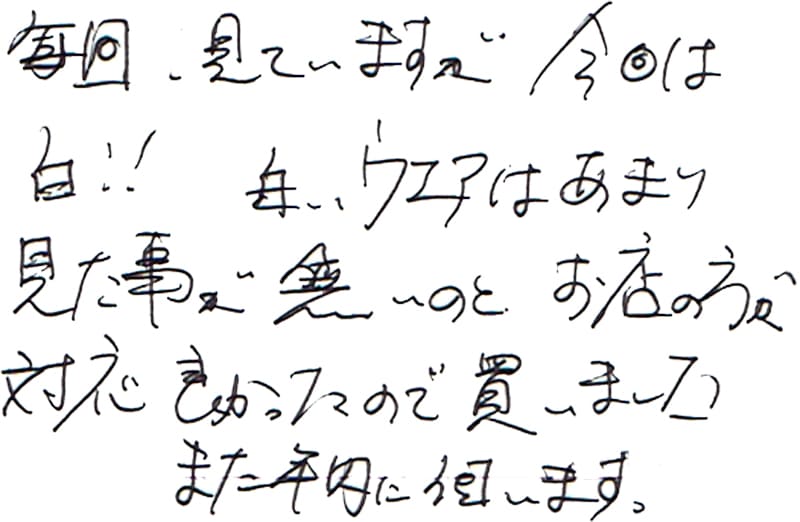 毎回、見ていますが今回は
白!! 白いウエアはあまり
見た事が無いのと お店の方が
対応良かったので買いました
また年内に伺います。